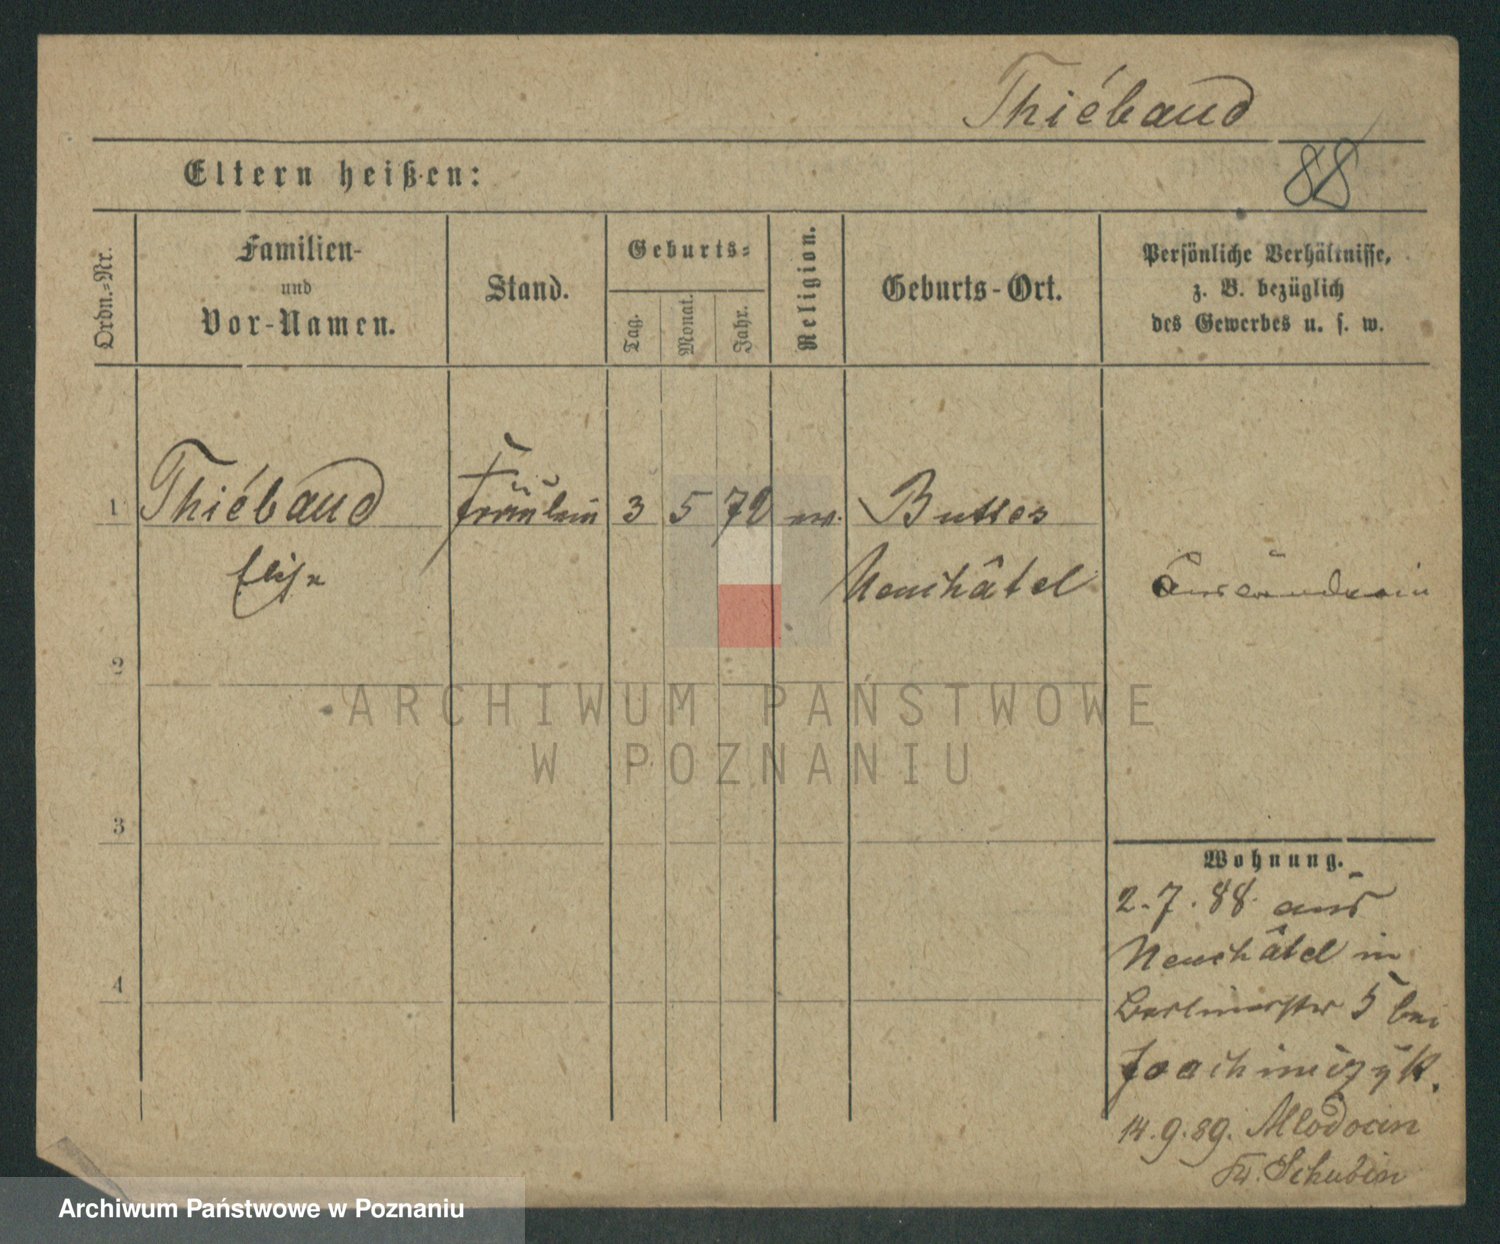 Thiébaud
88
Eltern heißen:
Ordn.-Nr.
Familien-
und
Vor-Namen.
Stand.
Geburts-
Tag.
Monat.
Jahr.
Religion.
Geburts-Ort.
Persönliche Verhältnisse,
z. B. bezüglich
des Gewerbes u. s. w.
1 Thiébaud Fräulein 3 5 72 ev. Buttes
Elise Neuchâtel Ausländerin
2
ARCHIWUM PAŃSTWOWE
W POZNANIU
3
Wohnung.
2.7.88 aus
Neuchâtel in
Berlinerstr 5 bei
Joachimczyk.
4
14.9.89. Mlodocin
Kr. Schubin
Archiwum Państwowe w Poznaniu